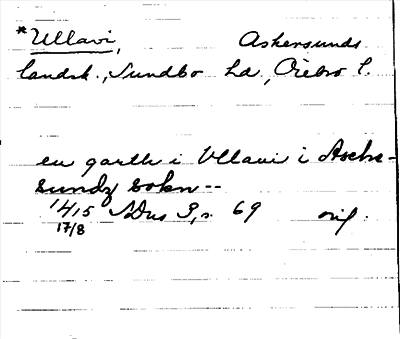 *Ullavi, Askersunds
landsk., Sundbo hd, Örebro l.
en gardh i Vllaui i Aske-
sundz sokn --
1415 SDns 3, s. 69 orig.
17/8